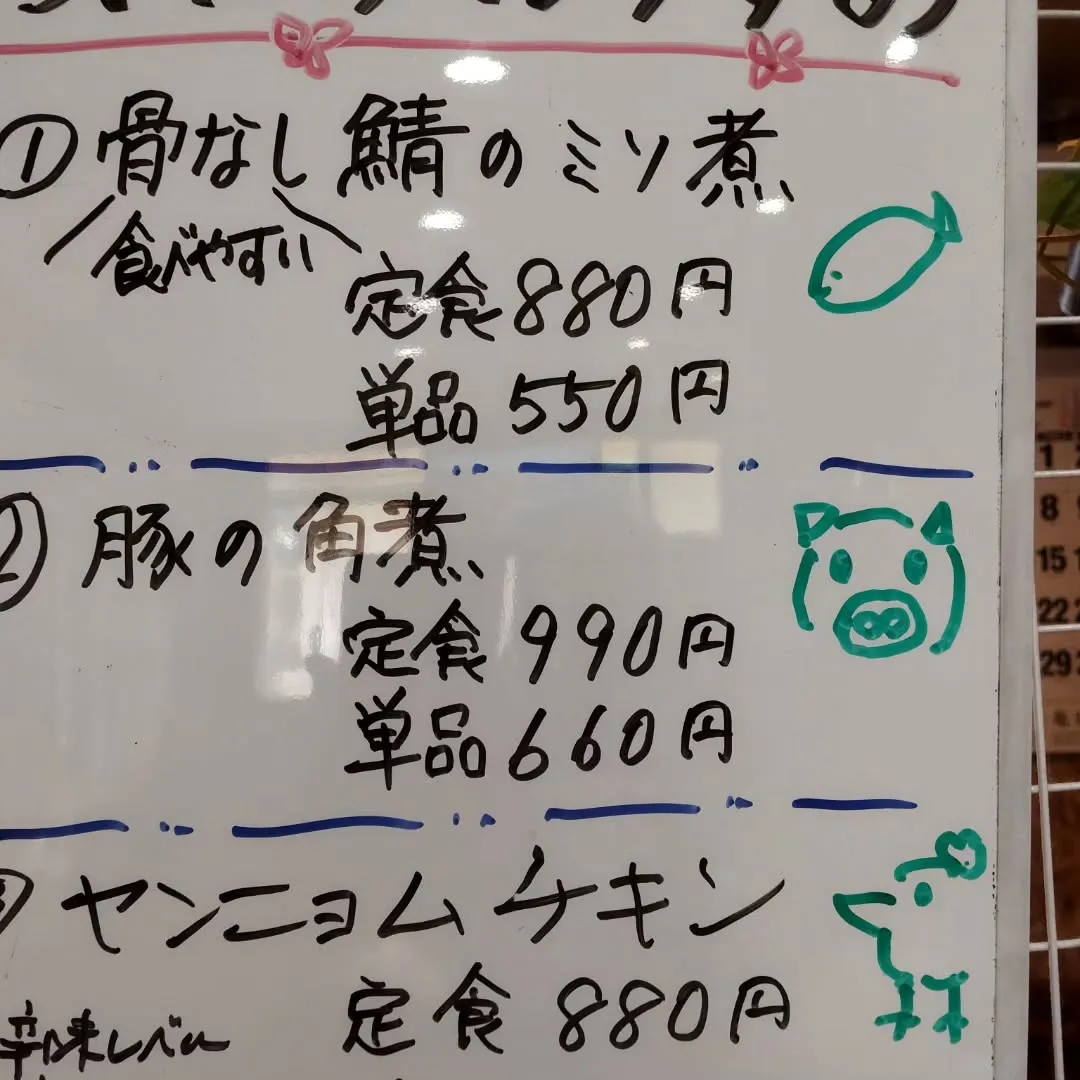 ① 骨なし鯖のミソ煮
食べやすい
定食 880円
単品 550円
② 豚の角煮
定食 990円
単品 660円
③ ヤンニョムチキン
定食 880円
辛味レベル
1
8
15
22
29